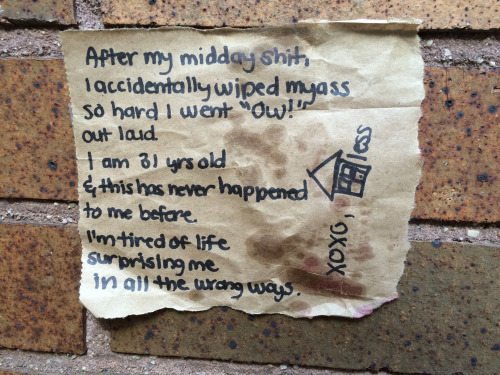 After my midday shit,
I accidentally wiped my ass
so hard I went "Ow!!"
out loud.
I am 31 yrs old
& this has never happened
to me before.
I'm tired of life
surprising me
in all the wrong ways.
XOXO,
less